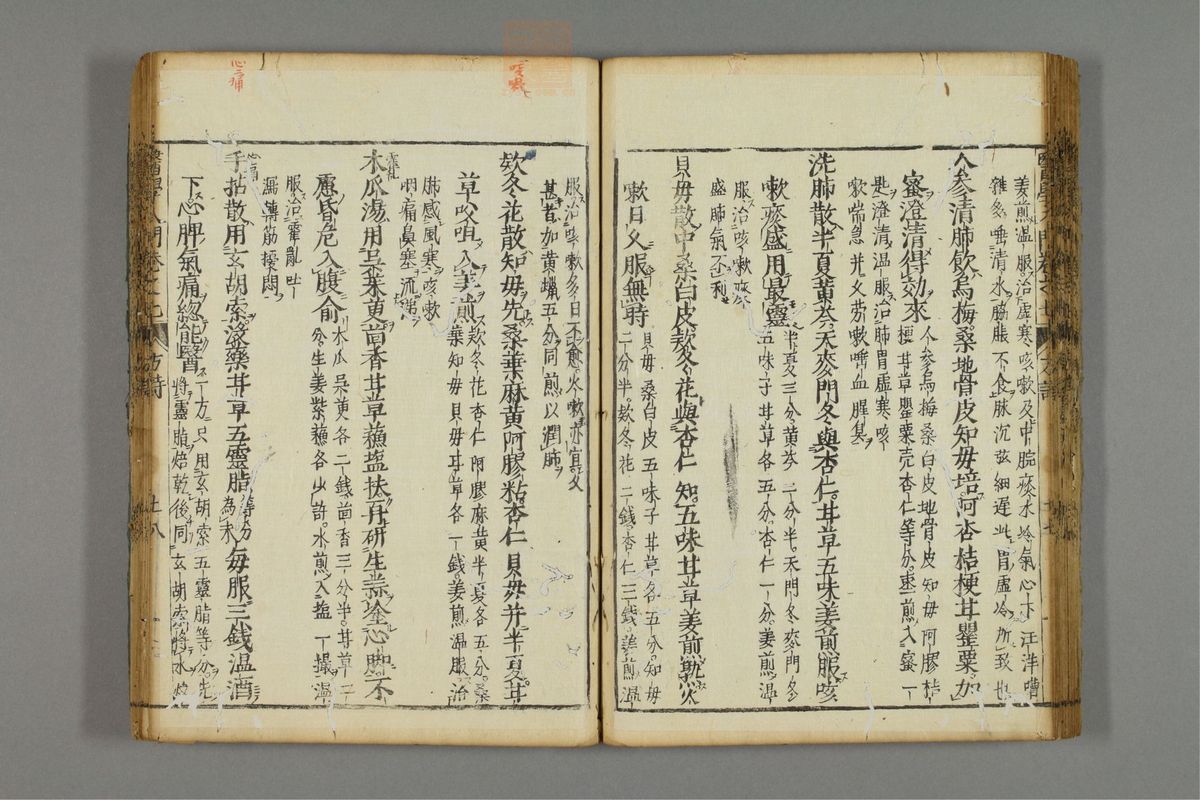 姜煎温服治虚寒咳嗽及中脘痰水冷氣心下汪洋嘈
雜多唾清水脇脹不食脉沉弦細遲此胃虚冷所致也
人參清肺飲烏梅桑地骨皮知毋培阿杏桔梗甘罌粟加
蜜澄清得効來
人參烏梅桑白皮地骨皮知毋阿膠桔
梗甘草罌粟壳杏仁等分水煎入蜜一
匙澄清温服治肺胃虚寒咳
嗽喘急并久労嗽唾血腥臭
洗肺散半夏黄芩天麥門冬與杏仁甘草五味姜煎服咳
嗽痰盛用最靈
半夏三分黄芩二分半天門冬麥門冬
五味子甘草各五分杏仁一分姜煎温
服治咳嗽痰
盛肺氣不利
貝毋散中桑白皮欵冬花與杏仁知五味甘草姜煎熟火
嗽日久服無時
貝毋桑白皮五味子甘草各五分知毋
二分半欵冬花二錢杏仁三錢姜煎温
服治咳嗽多日不愈火嗽亦宜久
甚者加黄蠟五分同煎以潤肺
欵冬花散知毋先桑葉麻黄阿膠粘杏仁貝毋并半夏甘
草㕮咀入姜煎
欵冬花杏仁阿膠麻黄半夏各五分桑
葉知毋貝毋甘草各一錢姜煎温服治
肺感風寒咳嗽
咽痛鼻塞流涕
霍乱
木瓜湯用吴茱萸茴香甘草蘓塩扶再研生蒜塗心興不
慮昏危入腹俞
木瓜吴黄各二錢茴香三分半甘草二
分生姜紫蘓各少許水煎入塩一撮温
服治霍亂吐
瀉藥筋擾悶
心痛
手拈散用玄胡索没藥甘草五靈脂
等分
為末
毎服三錢温酒
下心脾氣痛総能醫
一方只用玄胡索五靈脂等分先
將靈脂焙乾後同玄胡索將水炒
方詩
十八